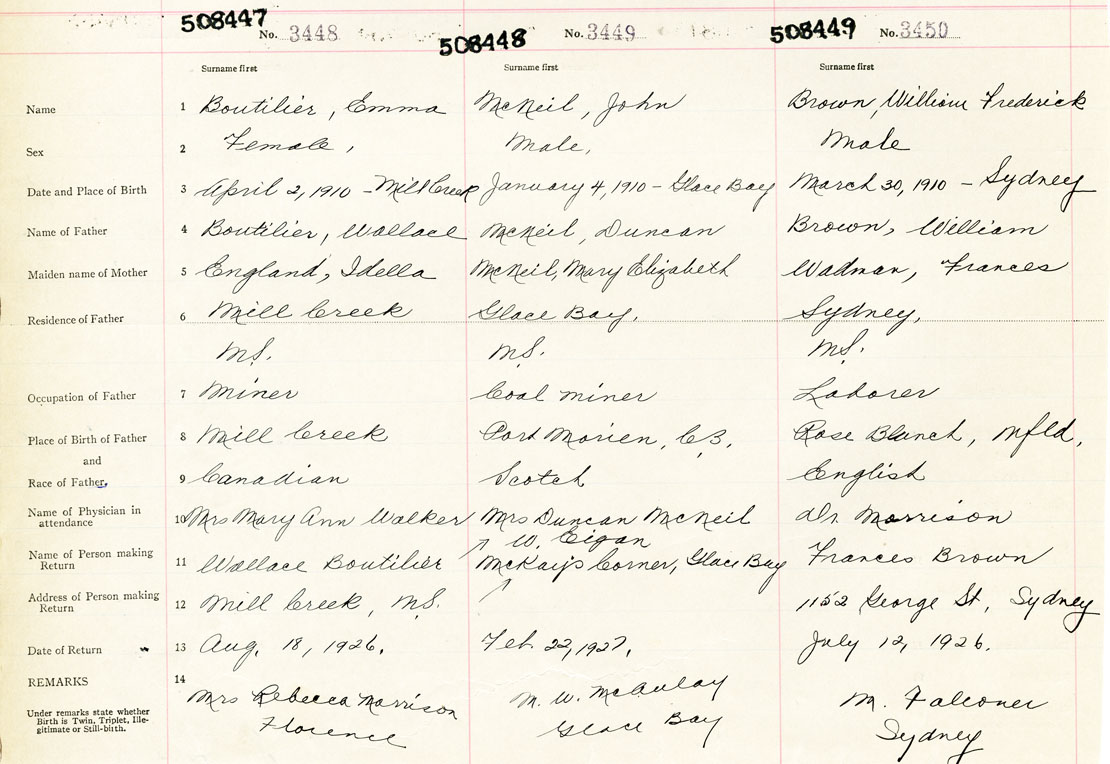 508447 No. 3448 508448 No. 3449 508449 No. 3450
Surname first Surname first Surname first
Name 1 Boutilier, Emma McNeil, John Brown, William Frederick
Sex 2 Female, Male, Male
Date and Place of Birth 3 April 2, 1910 - Mill Creek January 4, 1910 - Glace Bay March 30, 1910 - Sydney
Name of Father 4 Boutilier, Wallace McNeil, Duncan Brown, William
Maiden name of Mother 5 England, Idella McNeil, Mary Elizabeth Wadman, Frances
Residence of Father 6 Mill Creek Glace Bay, Sydney,
N.S. N.S. N.S.
Occupation of Father 7 Miner Coal miner Laborer
Place of Birth of Father 8 Mill Creek Port Morien, C.B, Rose Blanch, Nfld,
and
Race of Father, 9 Canadian Scotch English
Name of Physician in
attendance 10 Mrs Mary Ann Walker Mrs Duncan McNeil Dr. Morrison
Name of Person making
Return 11 Wallace Boutilier McKay's Corner, Glace Bay Frances Brown
Address of Person making
Return 12 Mill Creek, N.S. 1152 George St, Sydney
Date of Return 13 Aug, 18, 1926. Feb. 22, 1927. July 12, 1926.
REMARKS 14
Mrs Rebecca Morrison M. W. McAulay M. Falconer
Florence Glace Bay Sydney
Under remarks state whether
Birth is Twin, Triplet, Ille-
gitimate or Still-birth.